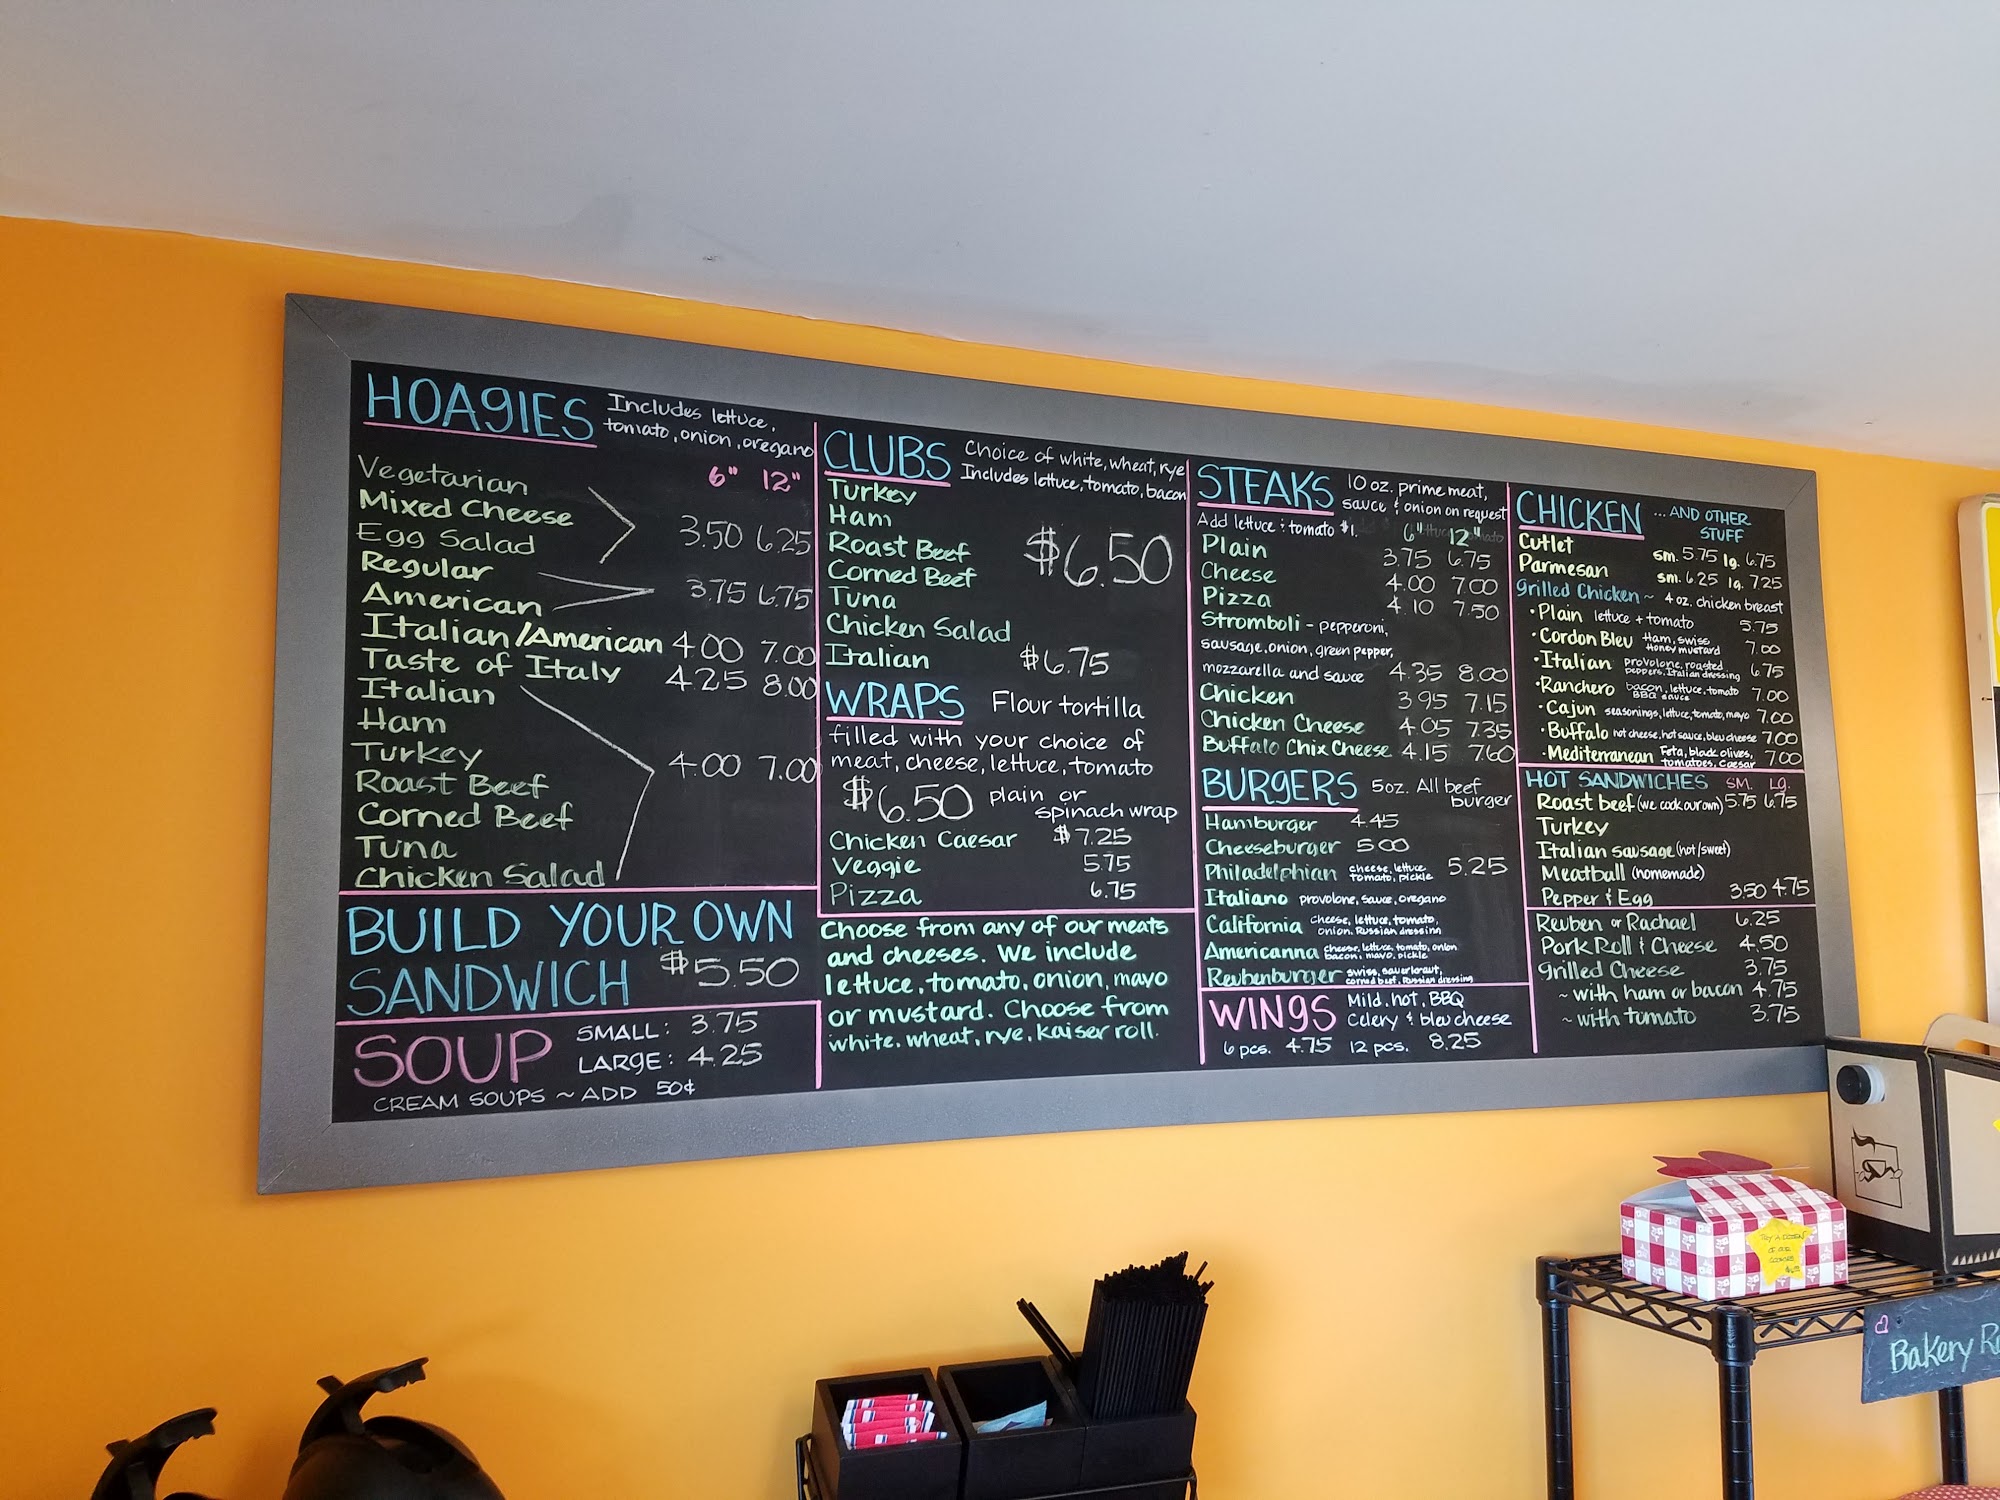 HOAGIES Includes lettuce,
tomato, onion, oregano
6" 12"
Vegetarian
Mixed Cheese
Egg Salad
3.50 6.25
Regular
American
3.75 6.75
Italian/American 4.00 7.00
Taste of Italy 4.25 8.00
Italian
Ham
Turkey
Roast Beef
4.00 7.00
Corned Beef
Tuna
Chicken Salad
BUILD YOUR OWN
SANDWICH $5.50
SOUP SMALL: 3.75
LARGE: 4.25
CREAM SOUPS ~ ADD 50¢
CLUBS Choice of white, wheat, rye
Includes lettuce, tomato, bacon
Turkey
Ham
Roast Beef
Corned Beef
$6.50
Tuna
Chicken Salad
Italian $6.75
WRAPS Flour tortilla
filled with your choice of
meat, cheese, lettuce, tomato
$6.50 plain or
spinach wrap
Chicken Caesar $7.25
Veggie 5.75
Pizza 6.75
Choose from any of our meats
and cheeses. We include
lettuce, tomato, onion, mayo
or mustard. Choose from
white, wheat, rye, kaiser roll.
STEAKS 10 oz. prime meat,
sauce & onion on request
Add lettuce & tomato $1. 6" 12"
Plain 3.75 6.75
Cheese 4.00 7.00
Pizza 4.10 7.50
Stromboli - pepperoni,
sausage, onion, green pepper,
mozzarella and sauce 4.35 8.00
Chicken 3.95 7.15
Chicken Cheese 4.05 7.35
Buffalo Chix Cheese 4.15 7.60
BURGERS 5oz. All beef
burger
Hamburger 4.45
Cheeseburger 5.00
Philadelphian cheese, lettuce
tomato, pickle 5.25
Italiano provolone, sauce, oregano
California cheese, lettuce, tomato,
onion, Russian dressing
Americanna cheese, lettuce, tomato, onion
bacon, mayo, pickle
Reubenburger swiss, sauerkraut,
corned beef, Russian dressing
WINGS Mild, hot, BBQ
Celery & bleu cheese
6 pcs. 4.75 12 pcs. 8.25
CHICKEN ...AND OTHER
STUFF
Cutlet sm. 5.75 lg. 6.75
Parmesan sm. 6.25 lg. 7.25
Grilled Chicken ~ 4 oz. chicken breast
• Plain lettuce + tomato 5.75
• Cordon Bleu Ham, swiss
Honey mustard 7.00
• Italian provolone, roasted
peppers, Italian dressing 6.75
• Ranchero bacon, lettuce, tomato
BBQ sauce 7.00
• Cajun seasonings, lettuce, tomato, mayo 7.00
• Buffalo hot cheese, hot sauce, bleu cheese 7.00
• Mediterranean Feta, black olives,
tomatoes, Caesar 7.00
HOT SANDWICHES SM. LG.
Roast beef (we cook our own) 5.75 6.75
Turkey
Italian sausage (hot/sweet)
Meatball (homemade)
Pepper & Egg 3.50 4.75
Reuben or Rachael 6.25
Pork Roll & Cheese 4.50
Grilled Cheese 3.75
~ with ham or bacon 4.75
~ with tomato 3.75
TRY A DOZEN
OF OUR
Bakery